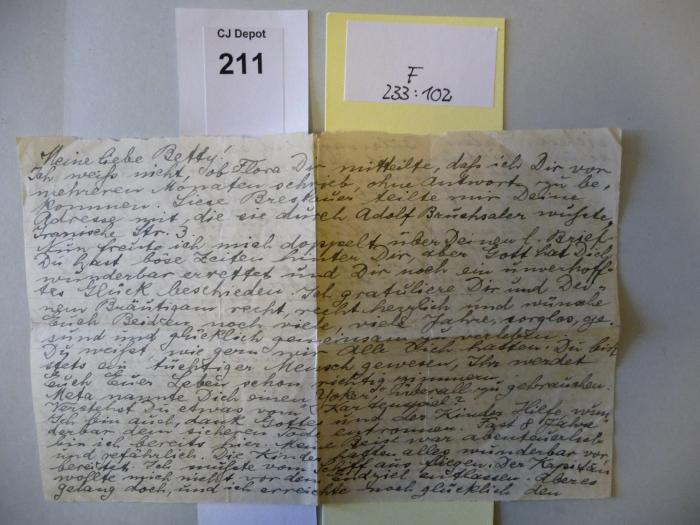 CJ Depot
211
F
233:102
Meine liebe Betty!
Ich weiß nicht, ob Flora Dir mitteilte, daß ich Dir vor
mehreren Monaten schrieb, ohne Antwort zu be-
kommen. Liese Breslauer teilte mir Deine
Adresse mit, die sie durch Adolf Bruchsaler wußte,
Iranische Str. 3.
Nun freute ich mich doppelt über Deinen l. Brief.
Du hast böse Zeiten hinter Dir, aber Gott hat Dich
wunderbar errettet und Dir noch ein unverhoff-
tes Glück beschieden. Ich gratuliere Dir und Dei-
nem Bräutigam recht, recht herzlich und wünsche
Euch Beiden noch viele, viele Jahre, sorglos, ge-
sund und glücklich gemeinsam zu verleben.
Du weißt, wie gern wir Alle Dich hatten. Du bist
stets ein tüchtiger Mensch gewesen, Ihr werdet
Euch Euer Leben schon richtig zimmern.
Meta nannte Dich omen, überall zu gebrauchen.
Verstehst Du etwas vom
Ich bin auch, dank Gottes und der Kinder Hilfe, wun-
derbar dem sicheren Tode entronnen. Fast 8 Jahre
bin ich bereits hier. Meine Reise war abenteuerlich
und gefährlich. Die Kinder hatten alles wunderbar vor-
bereitet. Ich mußte vom Schiff aus fliegen. Der Kapitän
wollte mich nicht vor dem Endziel entlassen. Aber es
gelang doch, und ich erreichte noch glücklich den